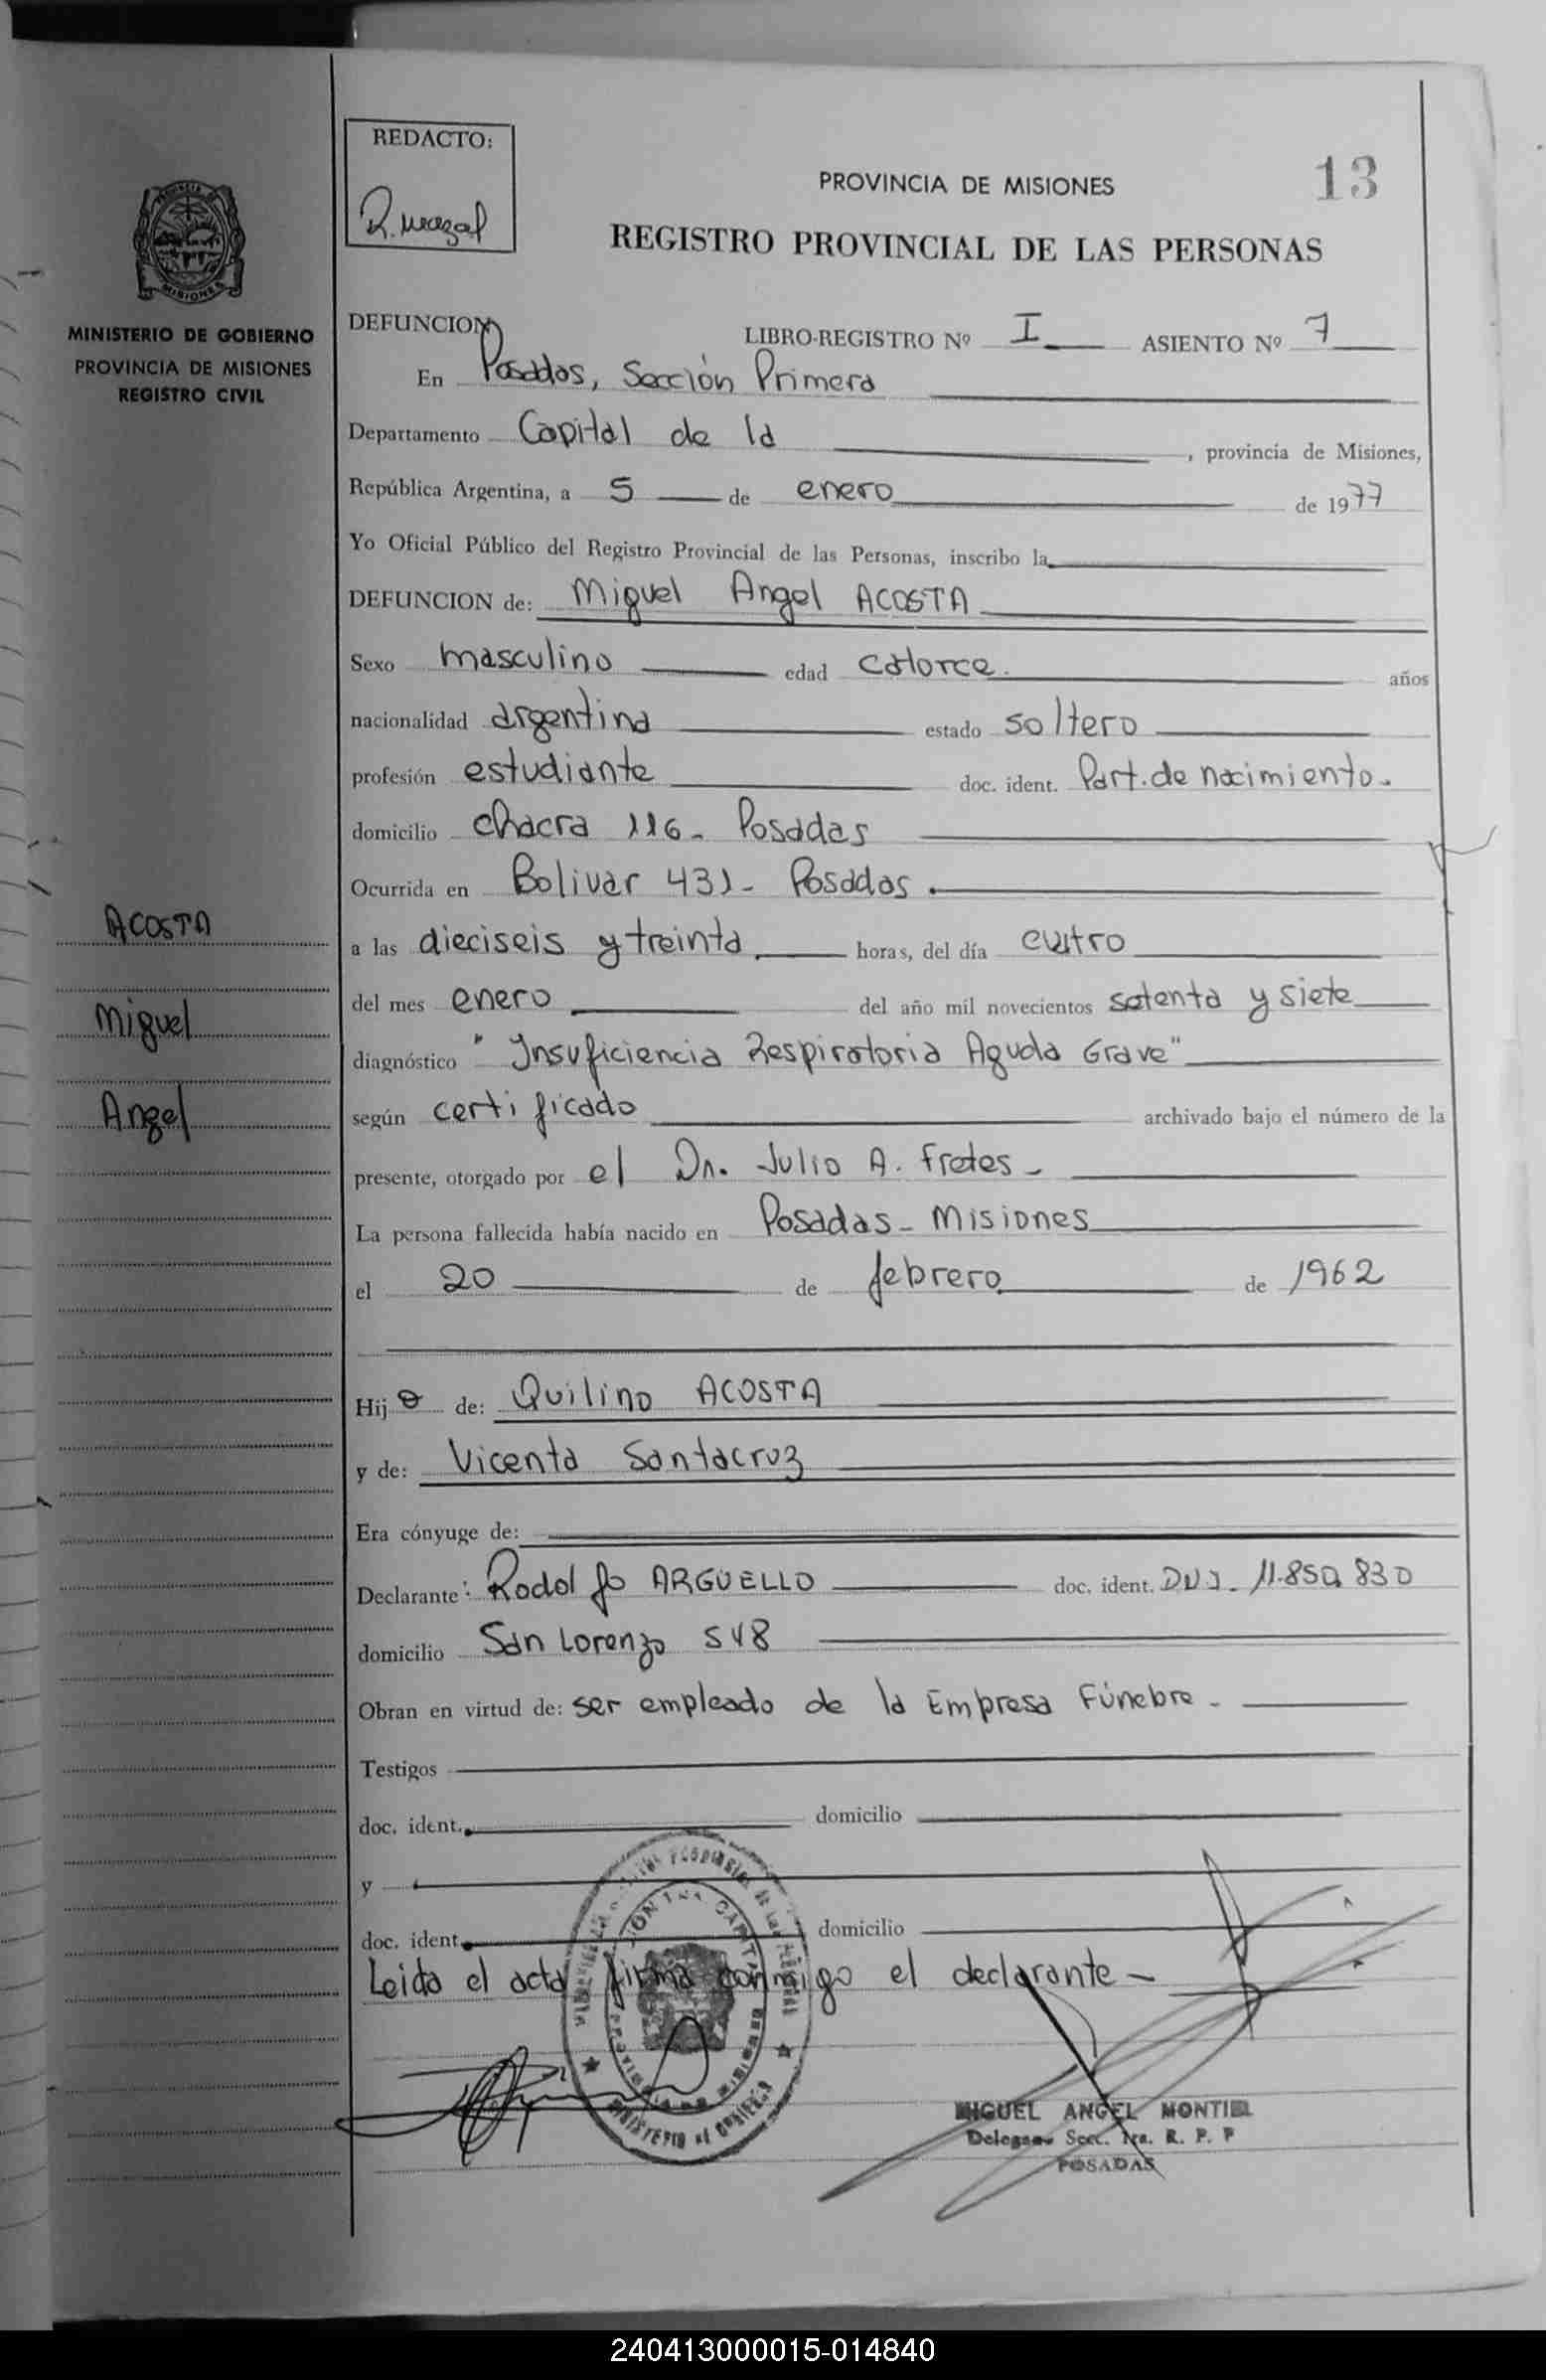 REDACTO:
PROVINCIA DE MISIONES
13
REGISTRO PROVINCIAL DE LAS PERSONAS
MINISTERIO DE GOBIERNO
PROVINCIA DE MISIONES
REGISTRO CIVIL
DEFUNCION LIBRO-REGISTRO Nº I ASIENTO Nº 7
En Posadas, Sección Primera
Departamento Capital de la , provincia de Misiones,
República Argentina, a 5 de enero de 1977
Yo Oficial Público del Registro Provincial de las Personas, inscribo la
DEFUNCION de: Miguel Angel ACOSTA
Sexo masculino edad catorce. años
nacionalidad argentina estado soltero
profesión estudiante doc. ident. Part. de nacimiento.
domicilio chacra 116- Posadas
Ocurrida en Bolivar 431- Posadas.
ACOSTA
a las dieciseis y treinta horas, del día cuatro
del mes enero del año mil novecientos setenta y siete
Miguel
diagnóstico "Insuficiencia Respiratoria Aguda Grave"
Angel
según certificado archivado bajo el número de la
presente, otorgado por el Dr. Julio A. Fretes-
La persona fallecida había nacido en Posadas- Misiones
el 20 de febrero de 1962
Hijo de: Quilino ACOSTA
y de: Vicenta Santacruz
Era cónyuge de:
Declarante: Rodolfo ARGÜELLO doc. ident. DNI. 11.850.830
domicilio San Lorenzo
Obran en virtud de: ser empleado de la Empresa Fúnebre-
Testigos
doc. ident. domicilio
y
doc. ident. domicilio
Leida el acta firma conmigo el declarante-
MIGUEL ANGEL MONTIEL
Secc. 1ra. R. P. P
POSADAS
240413000015-014840